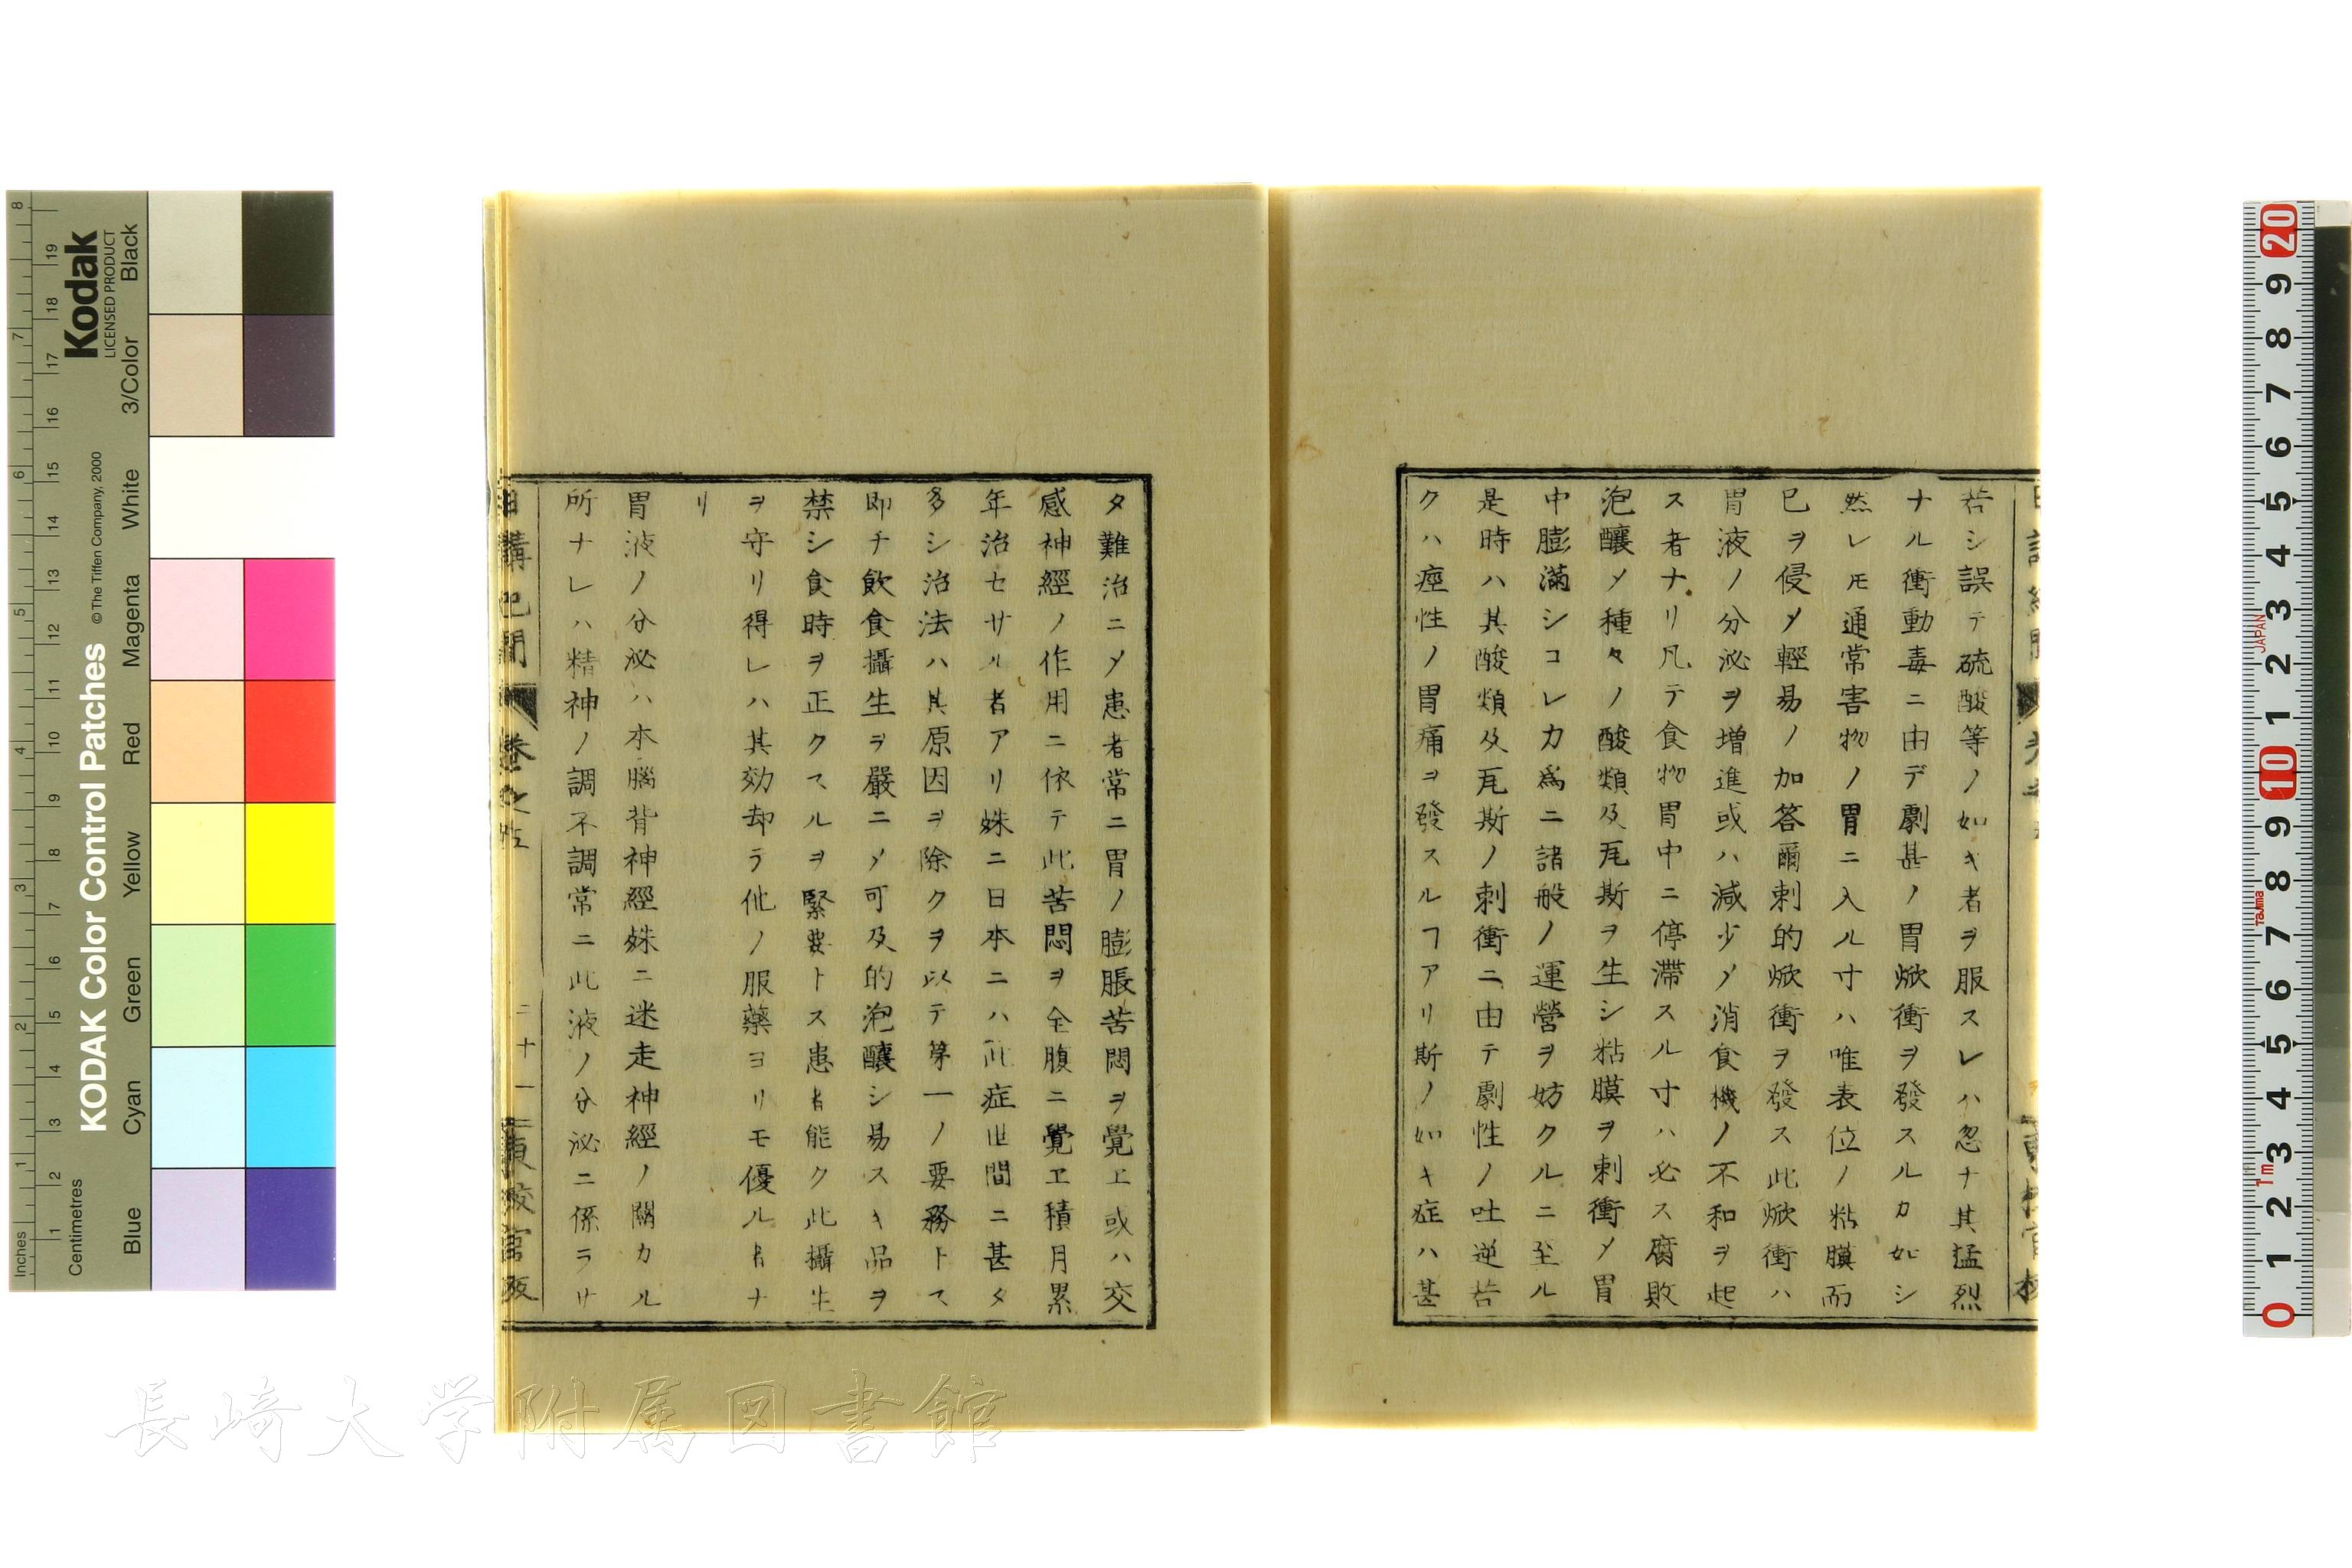 若シ誤テ硫酸等ノ如キ者ヲ服スレハ忽ナ其猛烈
ナル衝動毒ニ由デ劇甚ノ胃焮衝ヲ發スルカ如シ
然レ𪜈通常害物ノ胃ニ入ル寸ハ唯表位ノ粘膜而
已ヲ侵〆輕易ノ加答爾刺的焮衝ヲ發ス此焮衝ハ
胃液ノ分泌ヲ増進或ハ減少〆消食機ノ不和ヲ起
ス者ナリ凡テ食物胃中ニ停滯スル寸ハ必ス腐敗
泡釀〆種々ノ酸類及瓦斯ヲ生シ粘膜ヲ刺衝〆胃
中膨滿シコレカ爲ニ諸般ノ運營ヲ妨クルニ至ル
是時ハ其酸類及瓦斯ノ刺衝ニ由テ劇性ノ吐逆若
クハ痙性ノ胃痛ヲ發スルヿアリ斯ノ如キ症ハ甚
タ難治ニ〆患者常ニ胃ノ膨脹苦悶ヲ覺ヱ或ハ交
感神經ノ作用ニ依テ此苦悶ヲ全腹ニ覺ヱ積月累
年治セサル者アリ殊ニ日本ニハ此症世間ニ甚タ
多シ治法ハ其原因ヲ除クヲ以テ第一ノ要務トス
即チ飲食攝生ヲ嚴ニ〆可及的泡釀シ易スキ品ヲ
禁シ食時ヲ正クスルヲ緊要トス患者能ク此攝生
ヲ守リ得レハ其効却ラ他ノ服藥ヨリモ優ル者ナ
リ
胃液ノ分泌ハ本腦背神經殊ニ迷走神經ノ關カル
所ナレハ精神ノ調不調常ニ此液ノ分泌ニ係ラサ
日講記聞 卷之五 二十一 東校官版
Kodak
LICENSED PRODUCT
KODAK Color Control Patches
© The Tiffen Company, 2000
Inches
Centimetres
Blue Cyan Green Yellow Red Magenta White 3/Color Black
1 2 3 4 5 6 7 8
1 2 3 4 5 6 7 8 9 10 11 12 13 14 15 16 17 18 19
0 1 2 3 4 5 6 7 8 9 10 1 2 3 4 5 6 7 8 9 20
1m Tajima JAPAN
長崎大学附属図書館